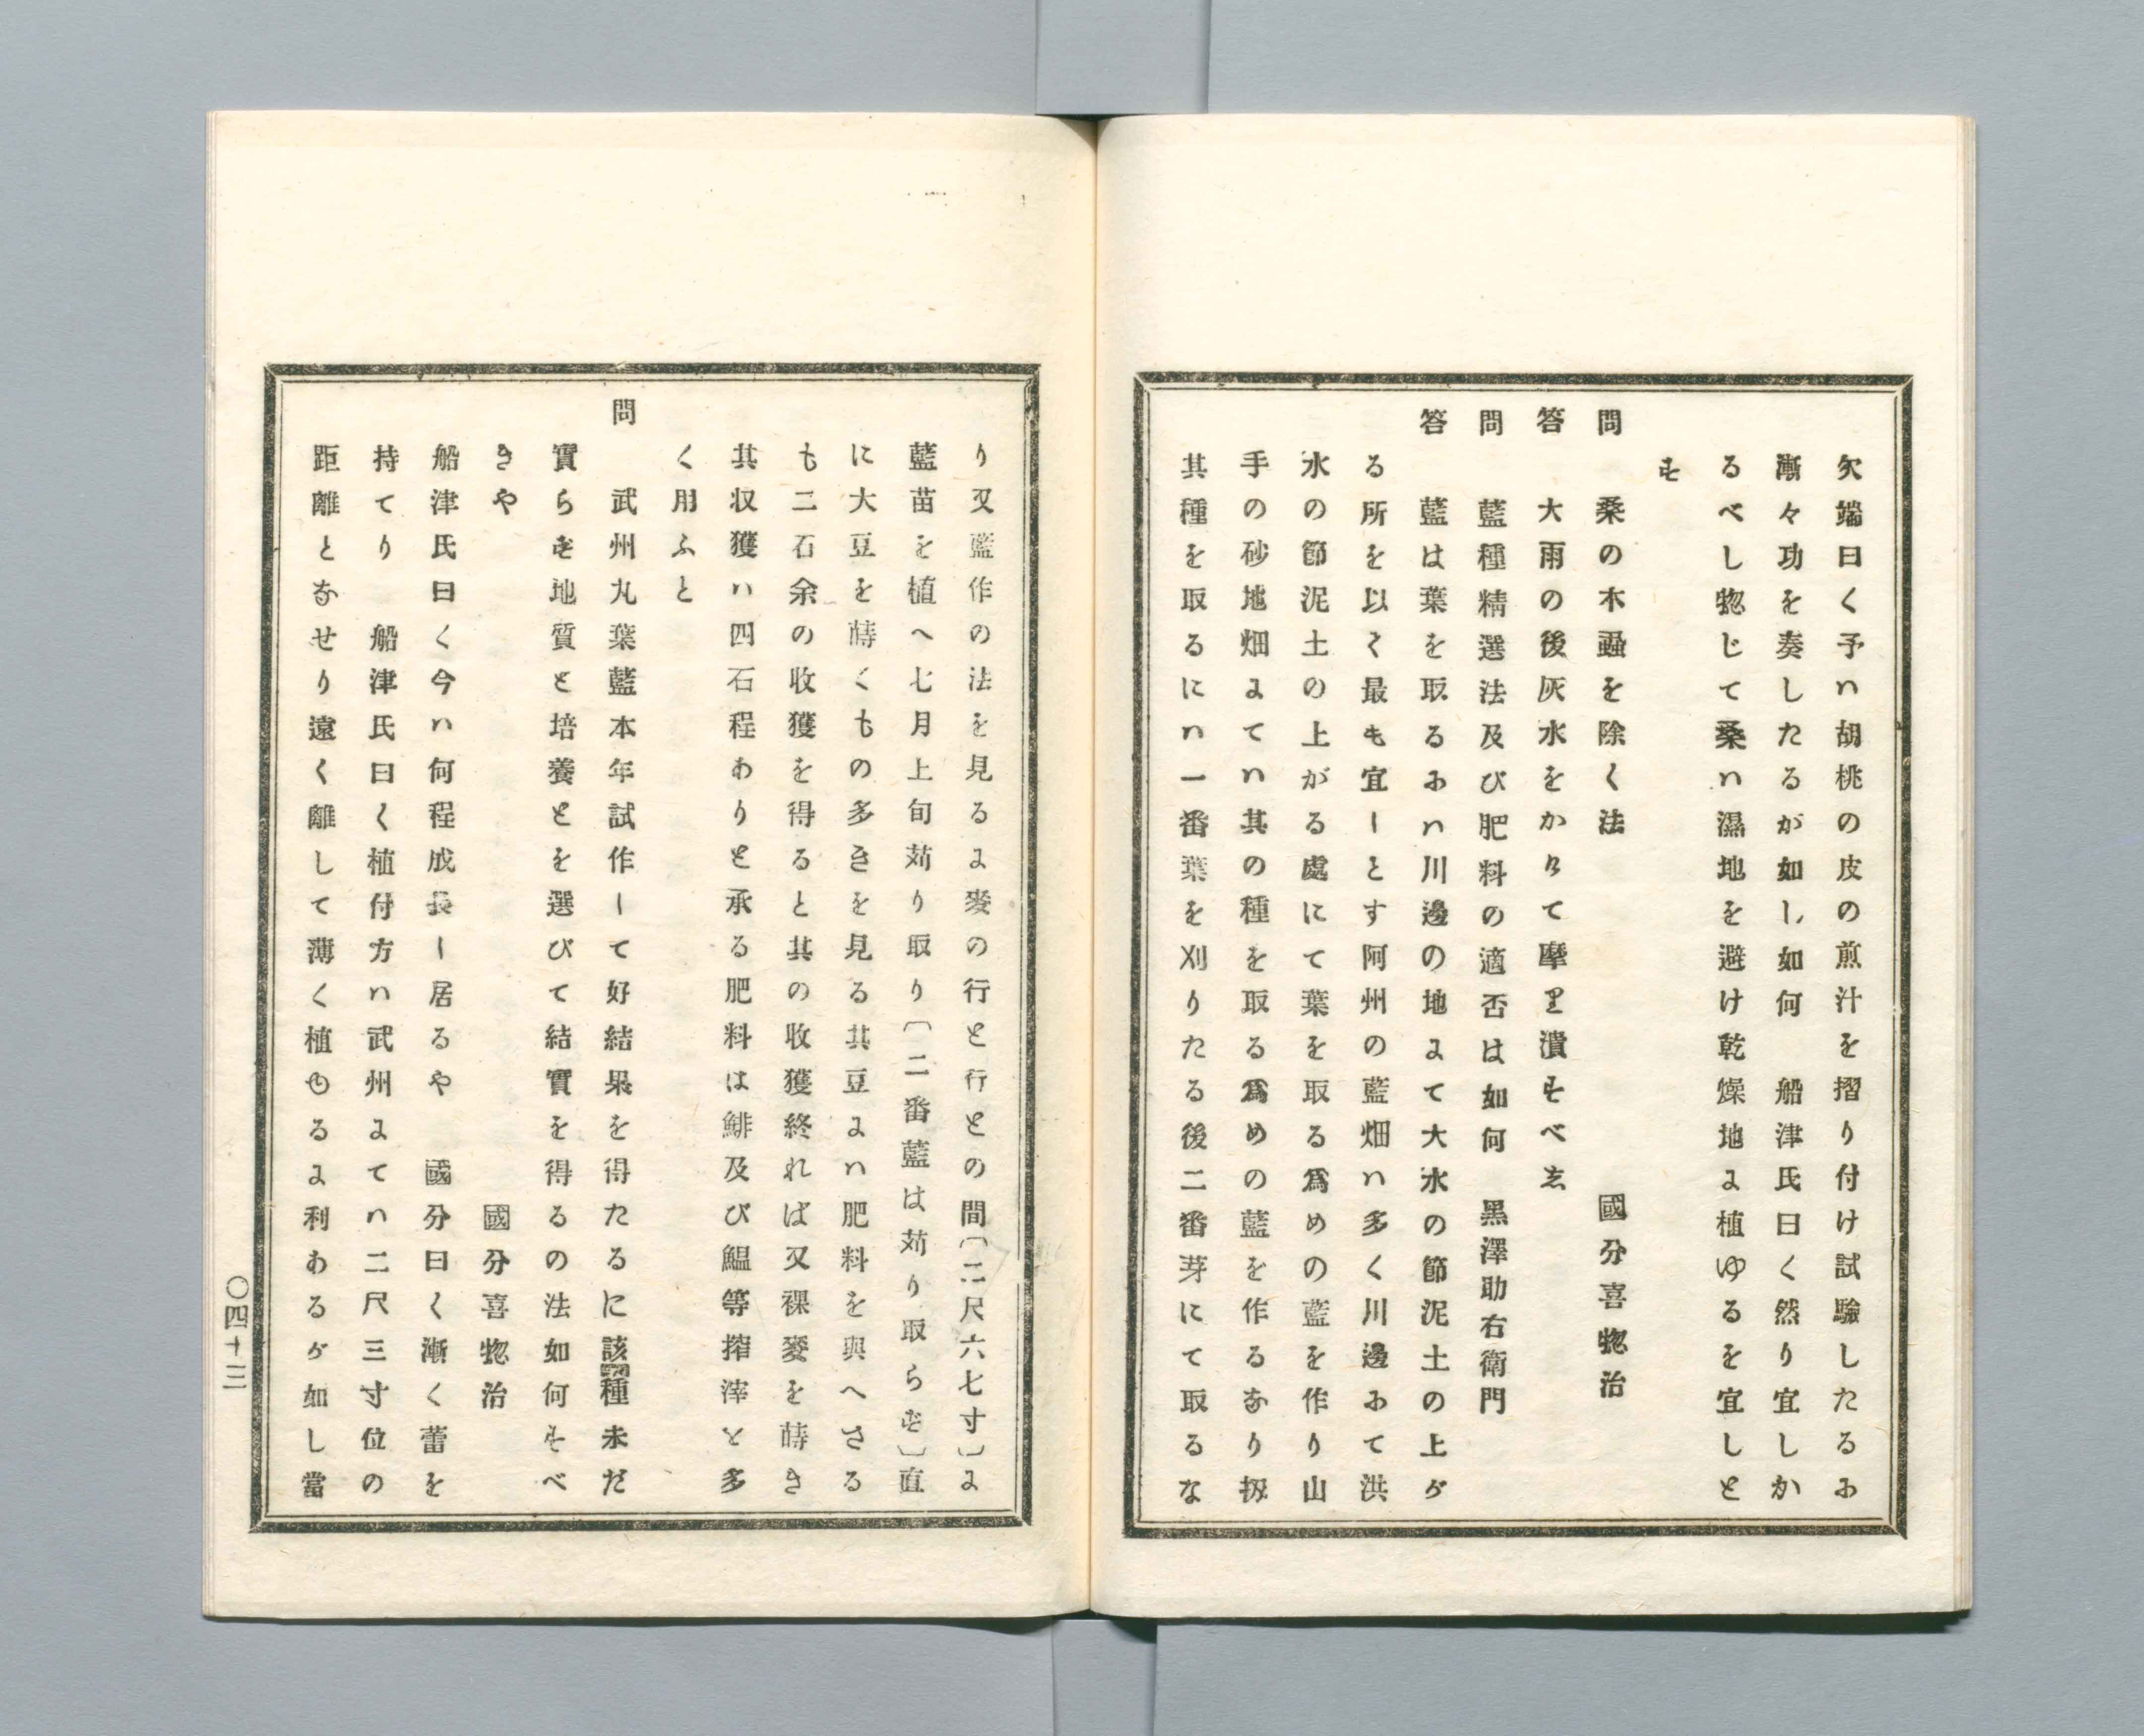 欠端曰く予ハ胡桃の皮の煎汁を摺り付け試驗したるに
漸々功を奏したるが如し如何　船津氏曰く然り宜しか
るべし惣じて桑ハ濕地を避け乾燥地に植ゆるを宜しと
す
問　桑の木蝨を除く法　國分喜惣治
答　大雨の後灰水をかけて摩り潰すべし
問　藍種精選法及び肥料の適否は如何　黒澤助右衛門
答　藍は葉を取るにハ川邊の地にて大水の節泥土の上が
る所を以て最も宜しとす阿州の藍畑ハ多く川邊にて洪
水の節泥土の上がる處にて葉を取る爲めの藍を作り山
手の砂地畑にてハ其の種を取る爲めの藍を作るなり扨
其種を取るにハ一番葉を刈りたる後二番芽にて取るな
り又藍作の法を見るに麥の行と行との間〔二尺六七寸〕に
藍苗を植へ七月上旬苅り取り〔二番藍は苅り取らず〕直
に大豆を蒔くもの多きを見る其豆にハ肥料を與へさる
も二石余の收獲を得ると其の收獲終れば又裸麥を蒔き
其収獲ハ四石程ありと承る肥料は鯡及び鰮等搾滓を多
く用ふと
問　武州丸葉藍本年試作して好結果を得たるに該種未だ
實らず地質と培養とを選びて結實を得るの法如何すべ
きや　國分喜惣治
船津氏曰く今ハ何程成長し居るや　國分曰く漸く蕾を
持てり　船津氏曰く植付方ハ武州にてハ二尺三寸位の
距離となせり遠く離して薄く植ゆるに利あるが如し當
〇四十三